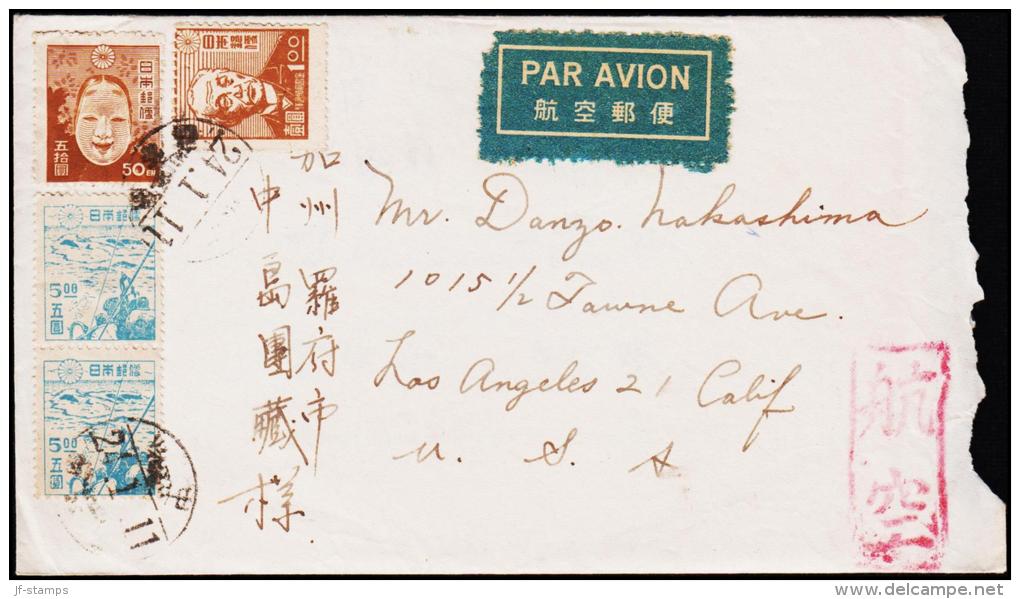 日本郵便
五拾圓
50EN
日本郵便
1.00
壹圓
PAR AVION
航空郵便
24.1.11
日本郵便
5.00
五圓
日本郵便
5.00
五圓
24.1.11
加州 羅府市
中島團藏様
Mr. Danzo Nakashima
1015 1/2 Towne Ave.
Los Angeles 21 Calif
U. S. A
航空
jf-stamps
www.delcampe.net